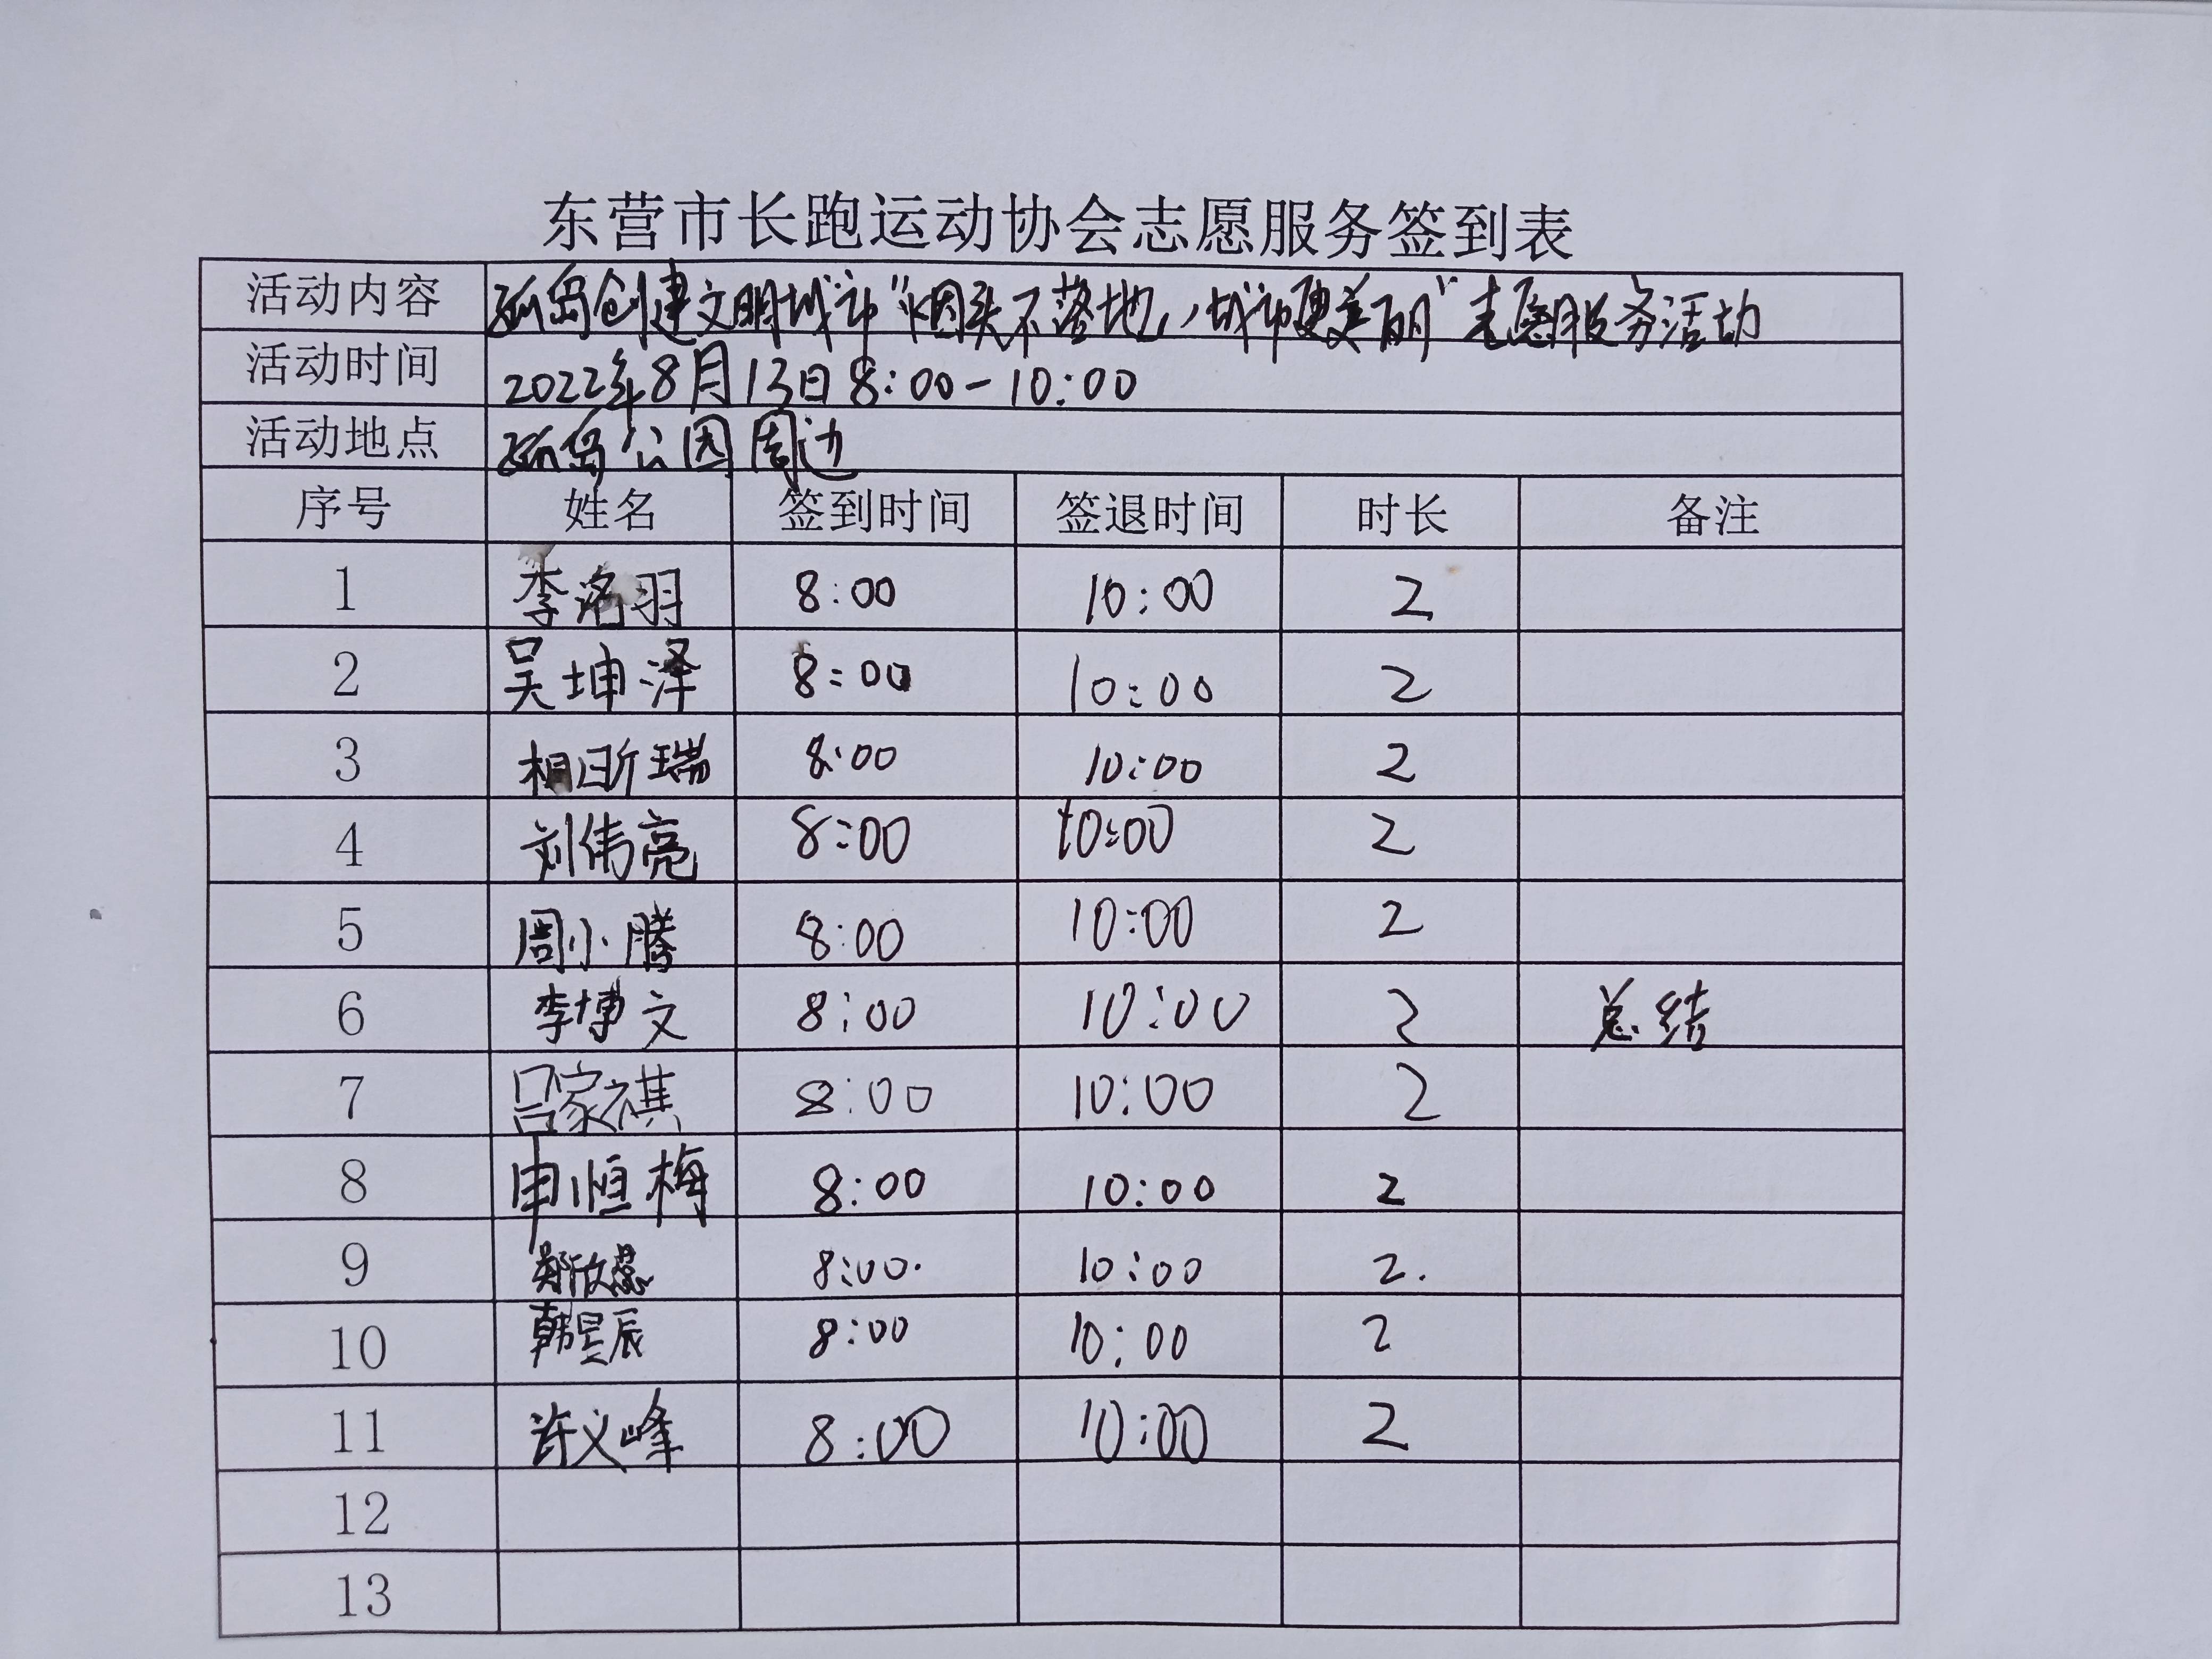 东营市长跑运动协会志愿服务签到表
活动内容 孤岛创建文明城市“烟头不落地，城市更美丽”志愿服务活动
活动时间 2022年8月13日8:00-10:00
活动地点 孤岛公园周边
序号 姓名 签到时间 签退时间 时长 备注
1 李洺羽 8:00 10:00 2
2 吴坤泽 8:00 10:00 2
3 相昕瑞 8:00 10:00 2
4 刘伟亮 8:00 10:00 2
5 周小腾 8:00 10:00 2
6 李博文 8:00 10:00 2 总结
7 吕家祺 8:00 10:00 2
8 申恒梅 8:00 10:00 2
9 郑欣蕊 8:00. 10:00 2.
10 韩昱辰 8:00 10:00 2
11 许义峰 8:00 10:00 2
12
13